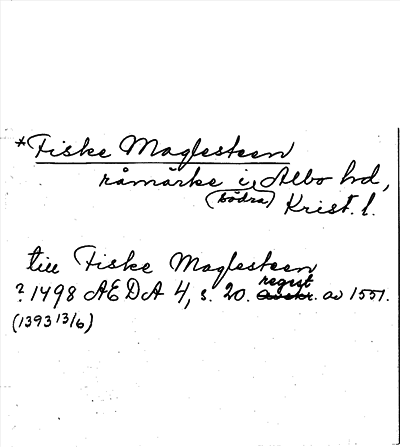 *Fiske Maglesteen
råmärke i Albo hd,
(södra) Krist. l.
till Fiske Maglesteen
regest
? 1498 AEDA 4, s. 20. avskr. av 1551.
(1393 13/6)